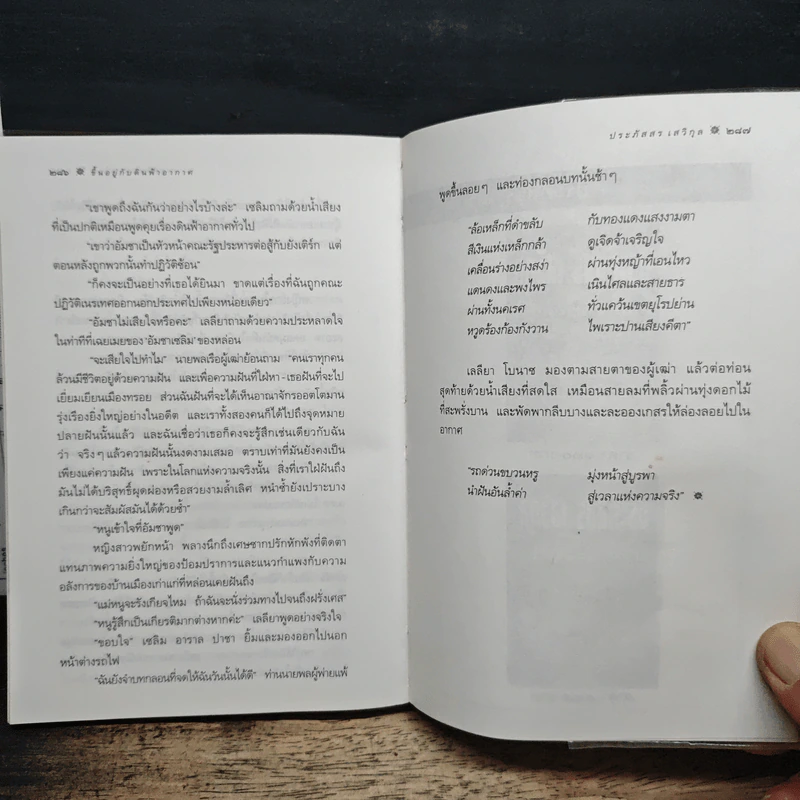 ๒๘๖ ขึ้นอยู่กับดินฟ้าอากาศ
"เขาพูดถึงฉันกันว่าอย่างไรบ้างล่ะ" เซลิมถามด้วยน้ำเสียง
ที่เป็นปกติเหมือนพูดคุยเรื่องดินฟ้าอากาศทั่วไป
"เขาว่าอัมชาเป็นหัวหน้าคณะรัฐประหารต่อสู้กับยังเติร์ก แต่
ตอนหลังถูกพวกนั้นทำปฏิวัติซ้อน"
"ก็คงจะเป็นอย่างที่เธอได้ยินมา ขาดแต่เรื่องที่ฉันถูกคณะ
ปฏิวัติเนรเทศออกนอกประเทศไปเพียงหน่อยเดียว"
"อัมชาไม่เสียใจหรือคะ" เลลียาถามด้วยความประหลาดใจ
ในท่าทีที่เฉยเมยของ 'อัมชาเซลิม' ของหล่อน
"จะเสียใจไปทำไม" นายพลเรือผู้เฒ่าย้อนถาม "คนเราทุกคน
ล้วนมีชีวิตอยู่ด้วยความฝัน และเพื่อความฝันที่ใฝ่หา - เธอฝันที่จะไป
เยี่ยมเยียนเมืองทรอย ส่วนฉันฝันที่จะได้เห็นอาณาจักรออตโตมาน
รุ่งเรืองยิ่งใหญ่อย่างในอดีต และเราทั้งสองคนก็ได้ไปถึงจุดหมาย
ปลายฝันนั้นแล้ว และฉันเชื่อว่าเธอก็คงจะรู้สึกเช่นเดียวกับฉัน
ว่า จริงๆ แล้วความฝันนั้นงดงามเสมอ ตราบเท่าที่มันยังคงเป็น
เพียงแค่ความฝัน เพราะในโลกแห่งความจริงนั้น สิ่งที่เราใฝ่ฝันถึง
มันไม่ได้บริสุทธิ์ผุดผ่องหรือสวยงามล้ำเลิศ หนำซ้ำยังเปราะบาง
เกินกว่าจะสัมผัสมันได้ด้วยซ้ำ"
"หนูเข้าใจที่อัมชาพูด"
หญิงสาวพยักหน้า พลางนึกถึงเศษซากปรักหักพังที่ติดตา
แทนภาพความยิ่งใหญ่ของป้อมปราการและแนวกำแพงกับความ
อลังการของบ้านเมืองเก่าแก่ที่หล่อนเคยฝันถึง
"แม่หนูจะรังเกียจไหม ถ้าฉันจะนั่งร่วมทางไปจนถึงฝรั่งเศส"
"หนูรู้สึกเป็นเกียรติมากต่างหากค่ะ" เลลียาพูดอย่างจริงใจ
"ขอบใจ" เซลิม อาราล ปาชา ยิ้มและมองออกไปนอก
หน้าต่างรถไฟ
"ฉันยังจำบทกลอนที่จดให้ฉันวันนั้นได้ดี" ท่านนายพลผู้พ่ายแพ้
ประภัสสร เสวิกุล ๒๘๗
พูดขึ้นลอยๆ และท่องกลอนบทนั้นช้าๆ
"ล้อเหล็กที่ดำขลับ กับทองแดงแสงงามตา
สีเงินแห่งเหล็กกล้า ดูเจิดจ้าเจริญใจ
เคลื่อนร่างอย่างสง่า ผ่านทุ่งหญ้าที่เอนไหว
แดนดงและพงไพร เนินไศลและสายธาร
ผ่านทั้งนคเรศ ทั่วแคว้นเขตยุโรปย่าน
หวูดร้องก้องกังวาน ไพเราะปานเสียงคีตา"
เลลียา โบนาซ มองตามสายตาของผู้เฒ่า แล้วต่อท่อน
สุดท้ายด้วยน้ำเสียงที่สดใส เหมือนสายลมที่พลิ้วผ่านทุ่งดอกไม้
ที่สะพรั่งบาน และพัดพากลีบบางและละอองเกสรให้ล่องลอยไปใน
อากาศ
"รถด่วนขบวนหรู มุ่งหน้าสู่บูรพา
นำฝันอันล้ำค่า สู่เวลาแห่งความจริง"